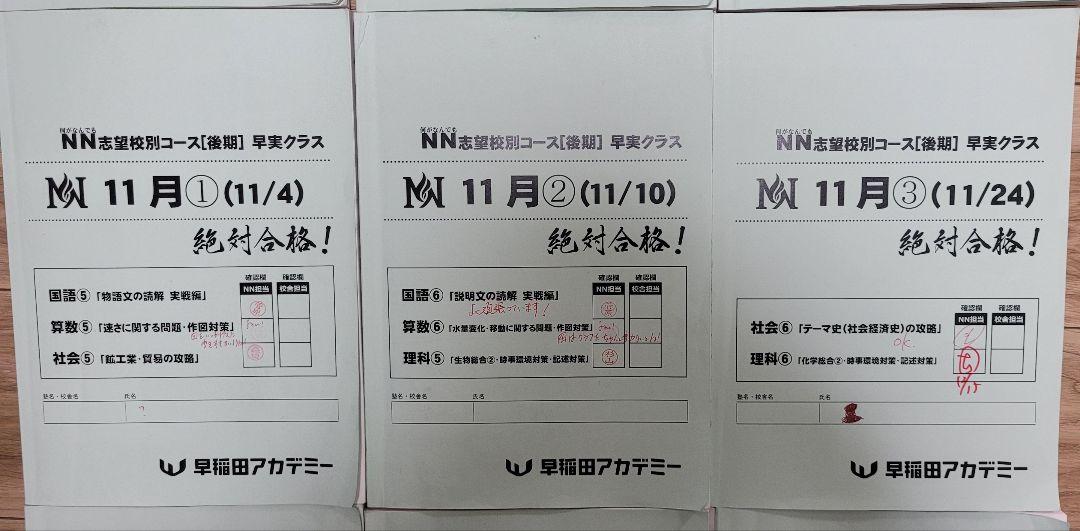 何がなんでも
NN志望校別コース[後期] 早実クラス
NN 11月①(11/4)
絶対合格!
確認欄 確認欄
NN担当 校舎担当
国語⑤「物語文の読解 実戦編」
算数⑤「速さに関する問題・作図対策」
社会⑤「鉱工業・貿易の攻略」
塾名・校舎名 氏名
?
早稲田アカデミー
何がなんでも
NN志望校別コース[後期] 早実クラス
NN 11月②(11/10)
絶対合格!
確認欄 確認欄
NN担当 校舎担当
国語⑥「説明文の読解 実戦編」
よく頑張っています!
算数⑥「水量変化・移動に関する問題・作図対策」
理科⑤「生物総合②・時事環境対策・記述対策」
塾名・校舎名 氏名
早稲田アカデミー
何がなんでも
NN志望校別コース[後期] 早実クラス
NN 11月③(11/24)
絶対合格!
確認欄 確認欄
NN担当 校舎担当
社会⑥「テーマ史(社会経済史)の攻略」
OK.
理科⑥「化学総合②・時事環境対策・記述対策」
塾名・校舎名 氏名
早稲田アカデミー